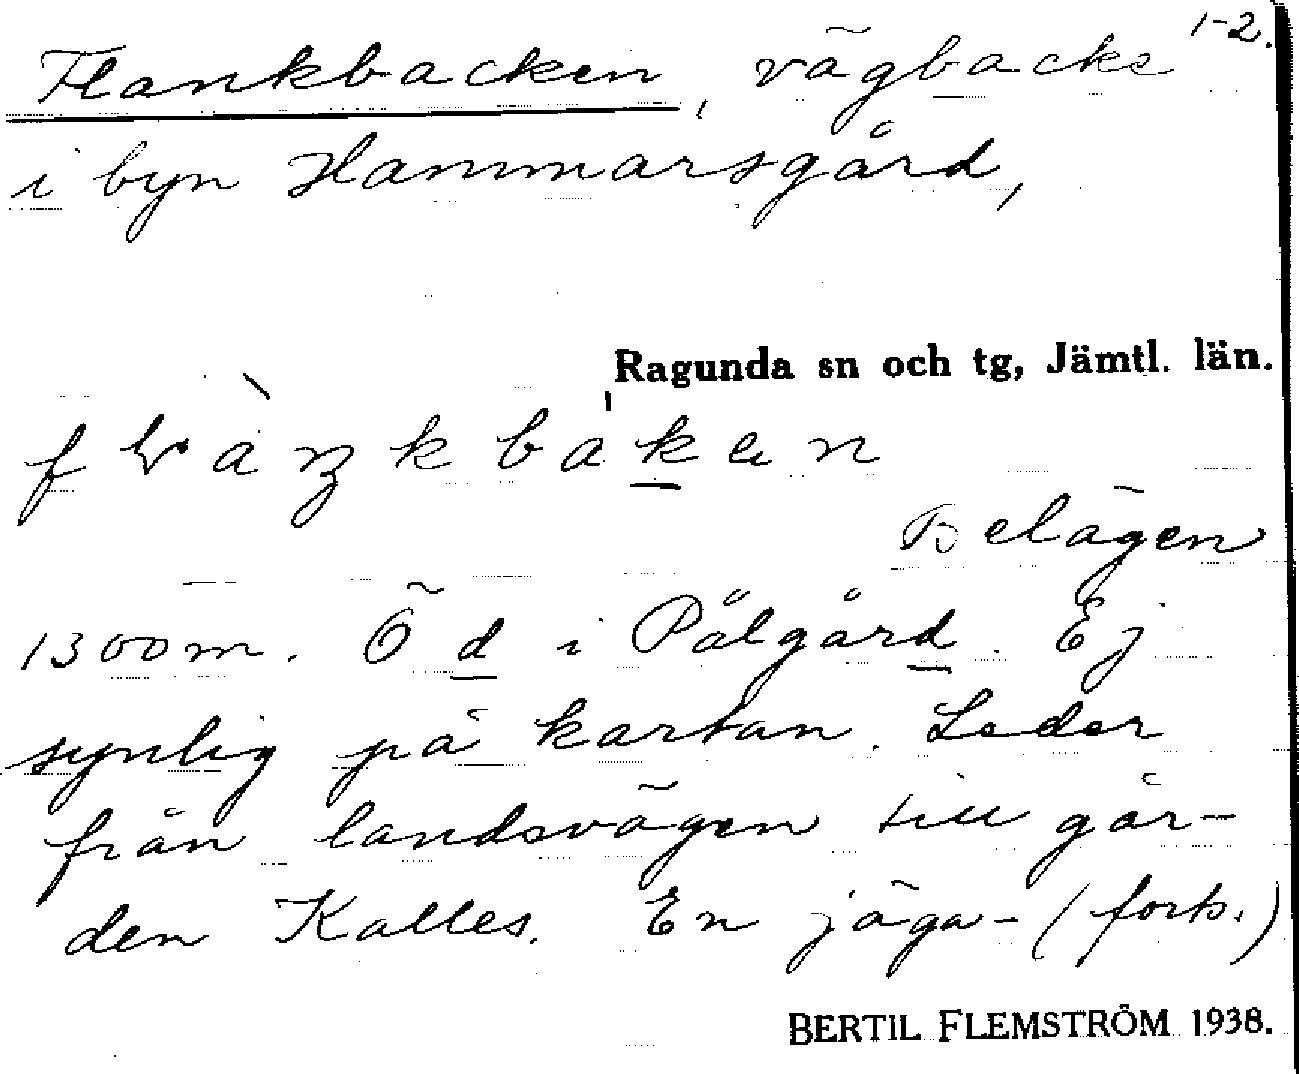 1-2.
Flankbacken, vägbacke
i byn Hammarsgård,
Ragunda sn och tg, Jämtl. län.
Belägen
1300 m. Ö d i Pålgård. Ej
synlig på kartan. Leder
från landsvägen till går-
den Kalles. En jäga- (forts.)
BERTIL FLEMSTRÖM 1938.